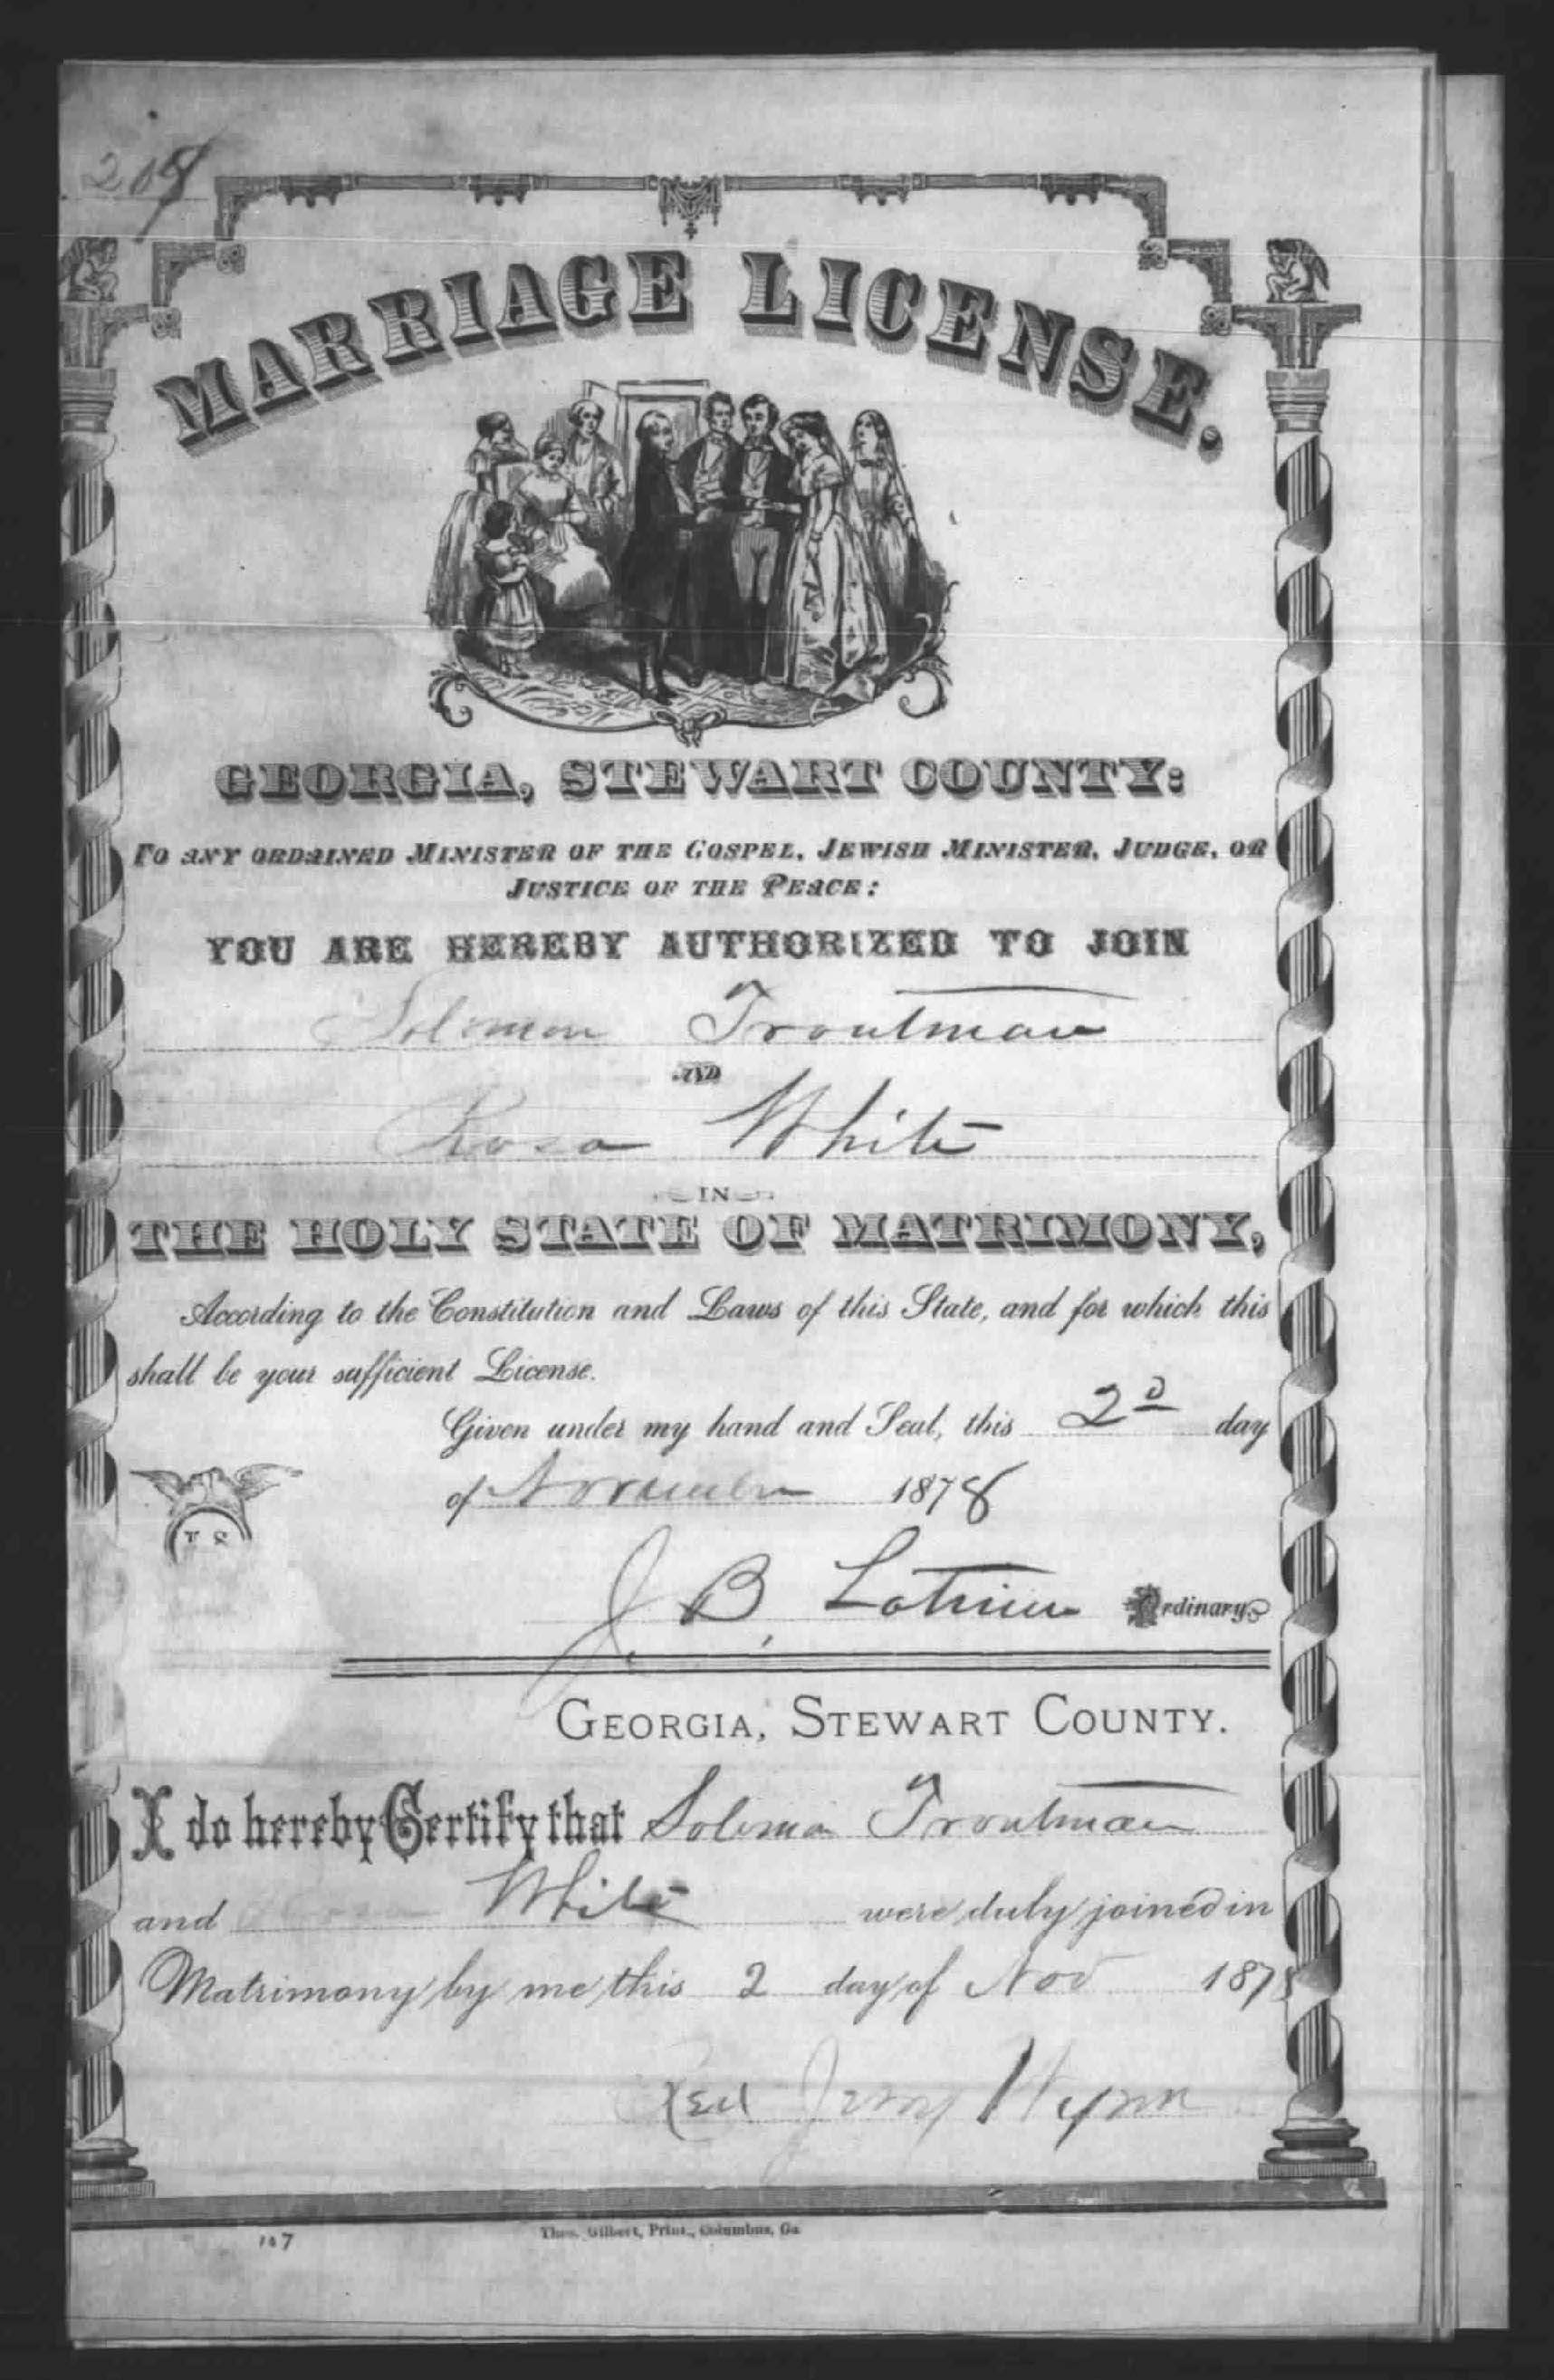 MARRIAGE LICENSE.
GEORGIA, STEWART COUNTY:
TO ANY ORDAINED MINISTER OF THE GOSPEL, JEWISH MINISTER, JUDGE, OR
JUSTICE OF THE PEACE:
YOU ARE HEREBY AUTHORIZED TO JOIN
Solomon Troutman
AND
Rosa White
IN
THE HOLY STATE OF MATRIMONY,
According to the Constitution and Laws of this State, and for which this
shall be your sufficient License.
Given under my hand and Seal, this 2d day
of November 1878
L S
J. B. Latimer Ordinary
GEORGIA, STEWART COUNTY.
I do hereby Certify that Solomon Troutman
and Rosa White were duly joined in
Matrimony by me this 2 day of Nov 1878
Wynn
Thos. Gilbert, Print., Columbus, Ga